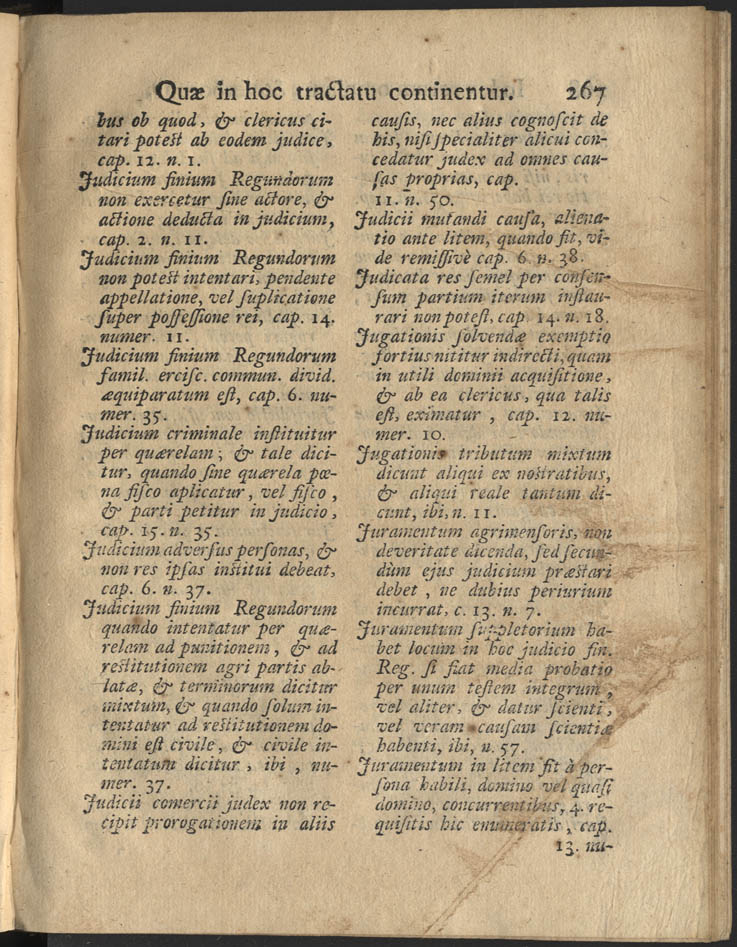 Quæ in hoc tractatu continentur. 267
bus ob quod, & clericus ci-
tari potest ab eodem judice,
cap. 12. n. 1.
Judicium finium Regundorum
non exercetur sine actore, &
actione deducta in judicium,
cap. 2. n. 11.
Judicium finium Regundorum
non potest intentari, pendente
appellatione, vel suplicatione
super possessione rei, cap. 14.
numer. 11.
Judicium finium Regundorum
famil. ercisc. commun. divid.
æquiparatum est, cap. 6. nu-
mer. 35.
Judicium criminale instituitur
per quærelam; & tale dici-
tur, quando sine quærela pœ-
na fisco aplicatur, vel fisco,
& parti petitur in judicio,
cap. 15. n. 35.
Judicium adversus personas, &
non res ipsas institui debeat,
cap. 6. n. 37.
Judicium finium Regundorum
quando intentatur per quæ-
relam ad punitionem, & ad
restitutionem agri partis ab-
latæ, & terminorum dicitur
mixtum, & quando solum in-
tentatur ad restitutionem do-
mini est civile, & civile in-
tentatum dicitur, ibi, nu-
mer. 37.
Judicii comercii judex non re-
cipit prorogationem in aliis
causis, nec alius cognoscit de
his, nisi specialiter alicui con-
cedatur judex ad omnes cau-
sas proprias, cap.
11. n. 50.
Judicii mutandi causa, aliena-
tio ante litem, quando fit, vi-
de remissivè cap. 6. n. 38.
Judicata res semel per consen-
sum partium iterum instau-
rari non potest, cap. 14. n. 18.
Jugationis solvendæ exemptio
fortius nititur indirecti, quam
in utili dominii acquisitione,
& ab ea clericus, qua talis
est, eximatur, cap. 12. nu-
mer. 10.
Jugationis tributum mixtum
dicunt aliqui ex nostratibus,
& aliqui reale tantum di-
cunt, ibi, n. 11.
Juramentum agrimensoris, non
deveritate dicenda, sed secun-
dùm ejus judicium præstari
debet, ne dubius periurium
incurrat, c. 13. n. 7.
Juramentum suppletorium ha-
bet locum in hoc judicio fin.
Reg. si fiat media probatio
per unum testem integrum,
vel aliter, & datur scienti,
vel veram causam scientiæ
habenti, ibi, n. 57.
Juramentum in litem fit à per-
sona habili, domino vel quasi
domino, concurrentibus, 4. re-
quisitis hic enumeratis, cap.
13. nu-